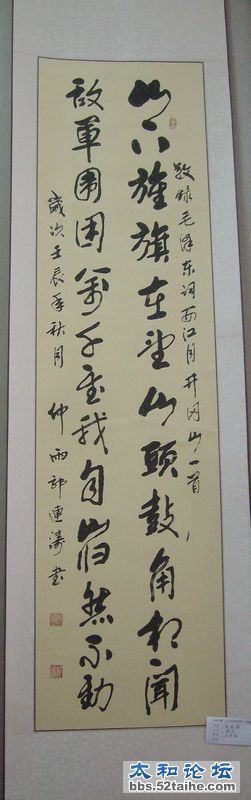 敬录毛泽东词西江月井冈山一首
山下旌旗在望山頭鼓角相聞
敌軍围困萬千重我自岿然不動
歲次壬辰年秋月 仲雨 連濤书
太和论坛
bbs.52taihe.com